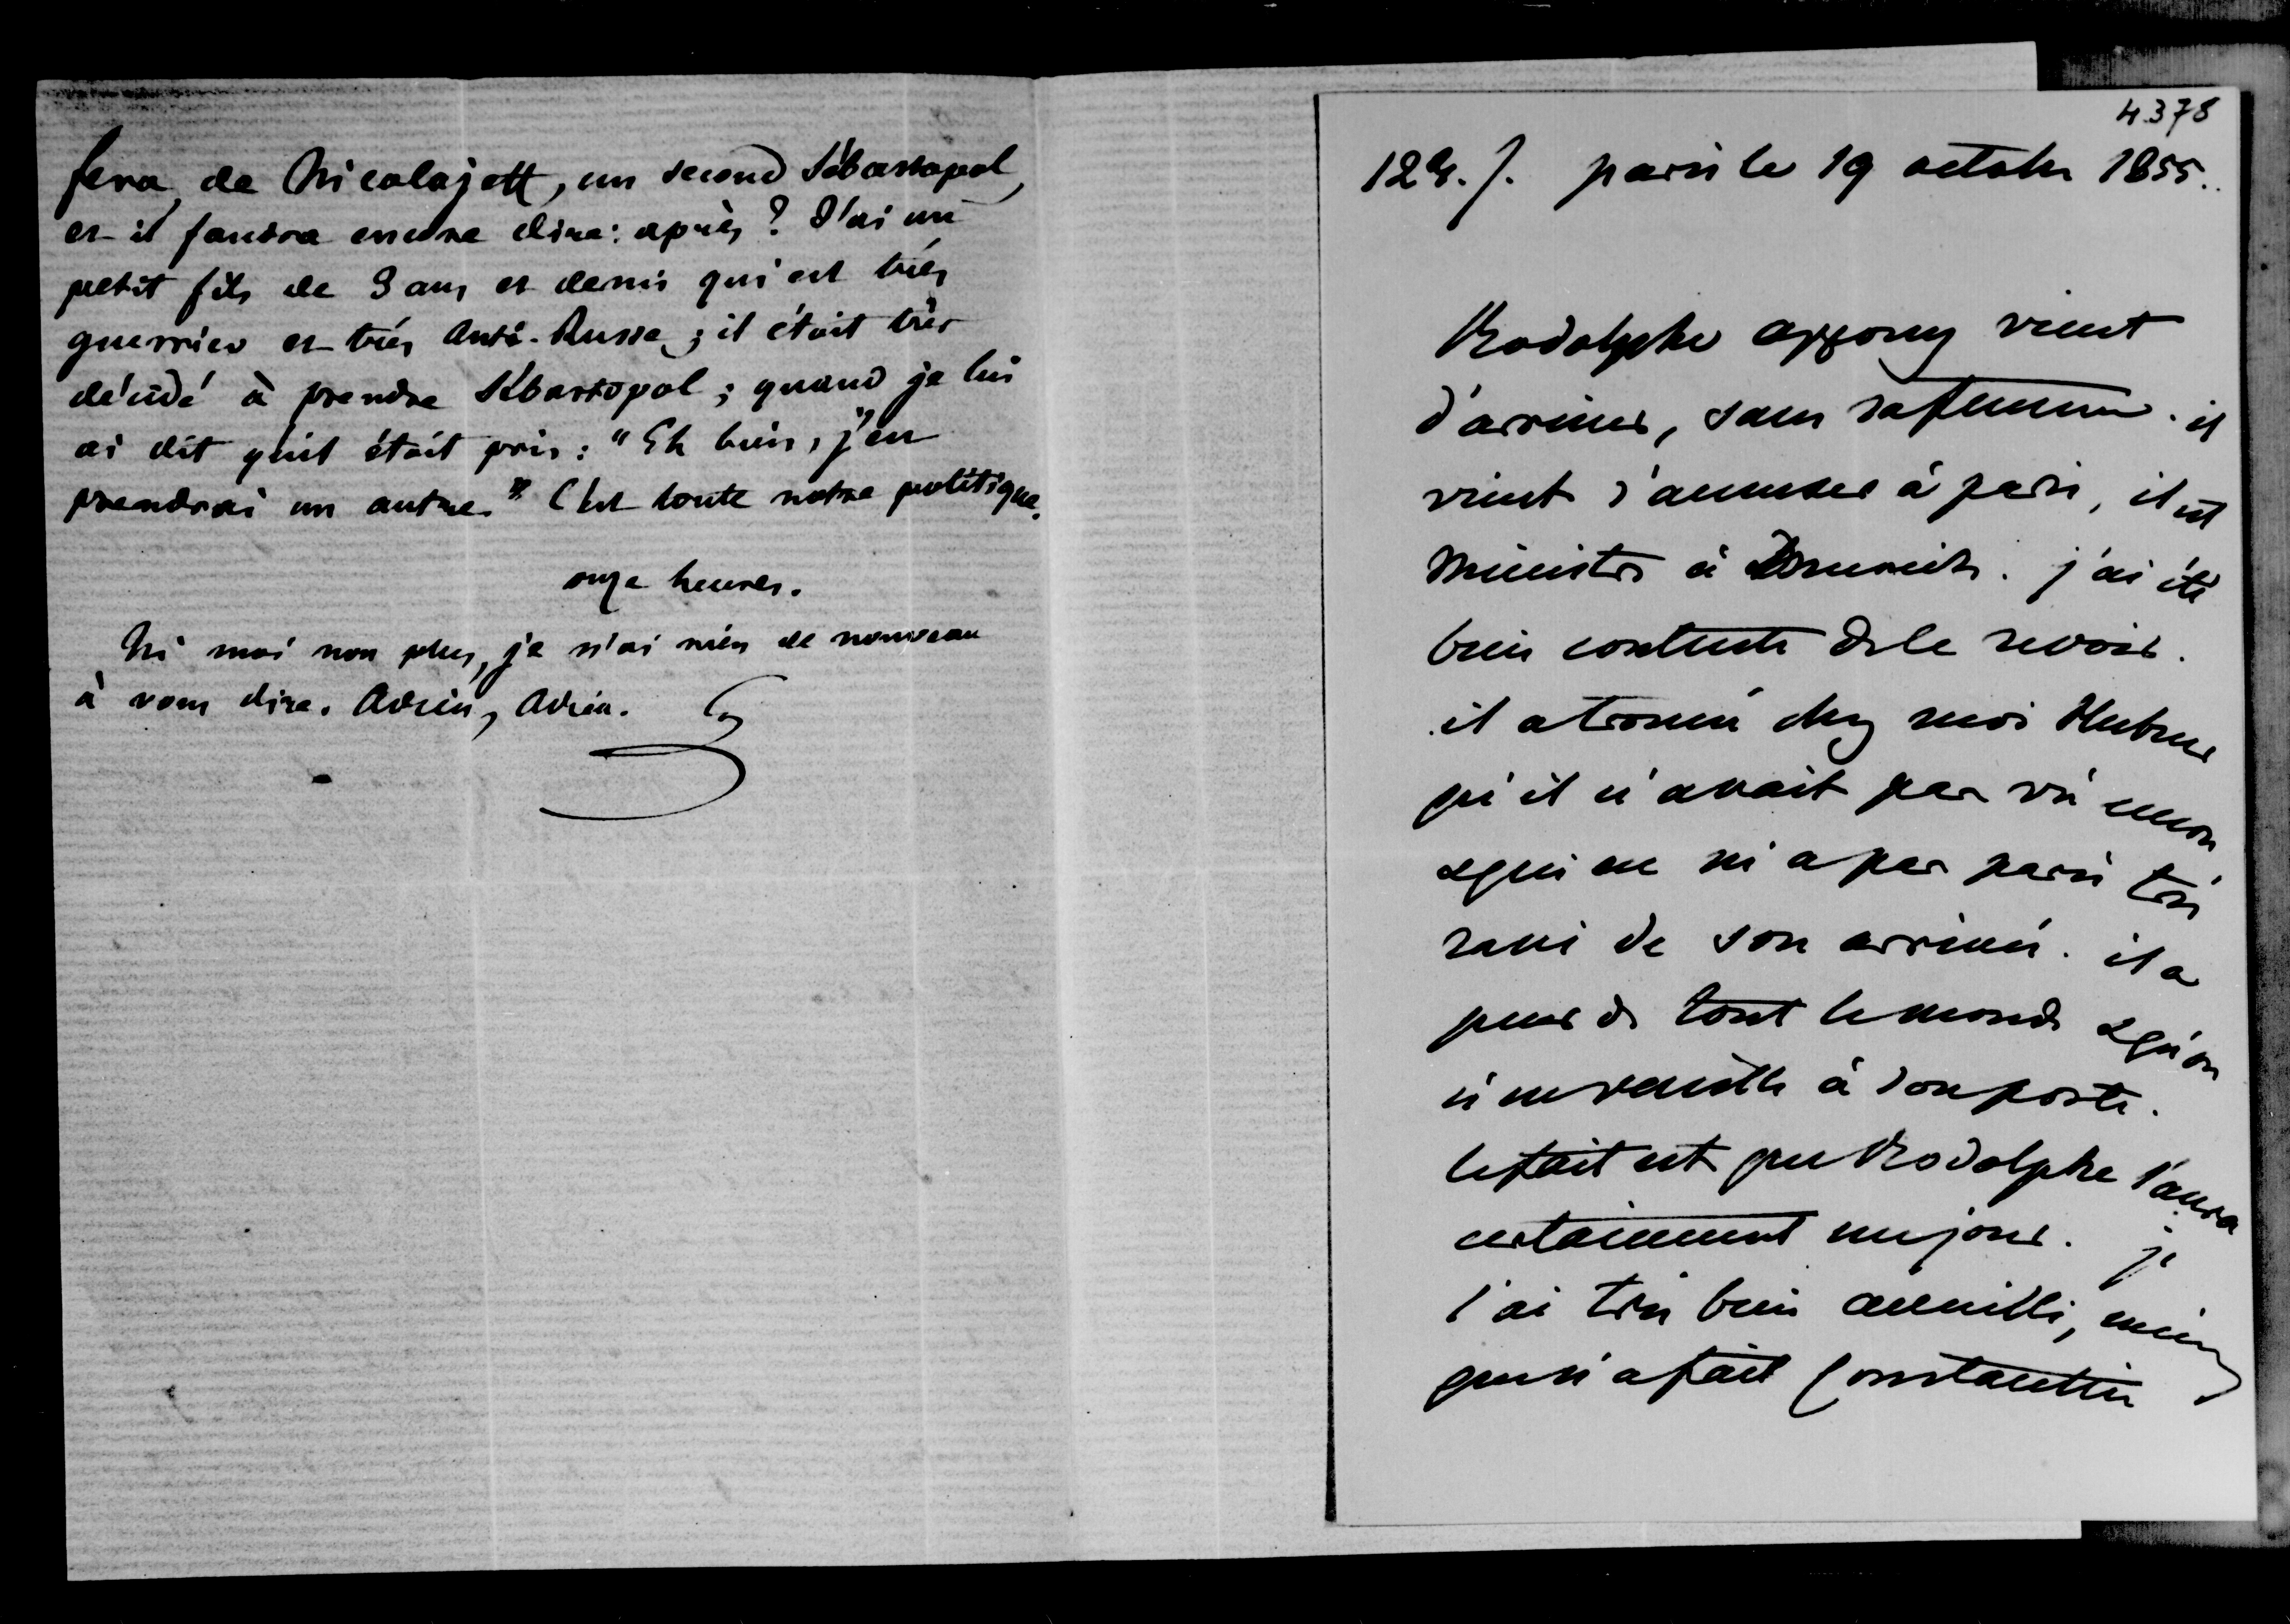 fera, de Nicolajeff, un second Sébastopol,
et il faudra encore dire: après? J'ai un
petit fils de 3 ans et demi qui est très
guerrier et très Anti-Russe; il était très
décidé à prendre Sébastopol; quand je lui
ai dit qu'il était pris: "Eh bien, j'en
prendrai un autre." C'est toute notre politique.
onze heures.
Ni moi non plus, je n'ai rien de nouveau
à vous dire. Adieu, Adieu. G
4378
129. /. paris le 19 octobre 1855.
Rodolphe appony vient
d'arriver, sans sa femme. il
vient s'amuser à paris, il est
Ministre à Munich. j'ai été
bien contente de le revoir.
il a trouvé chez moi Hubner
qu'il n'avait pas vu encore
& qui ne m'a pas paru très
ravi de son arrivée. il a
peur de tout le monde & qu'on
n'en veuille à son poste.
le fait est que Rodolphe l'aura
certainement un jour. je
l'ai très bien accueilli, mieux
que n'a fait Constantin